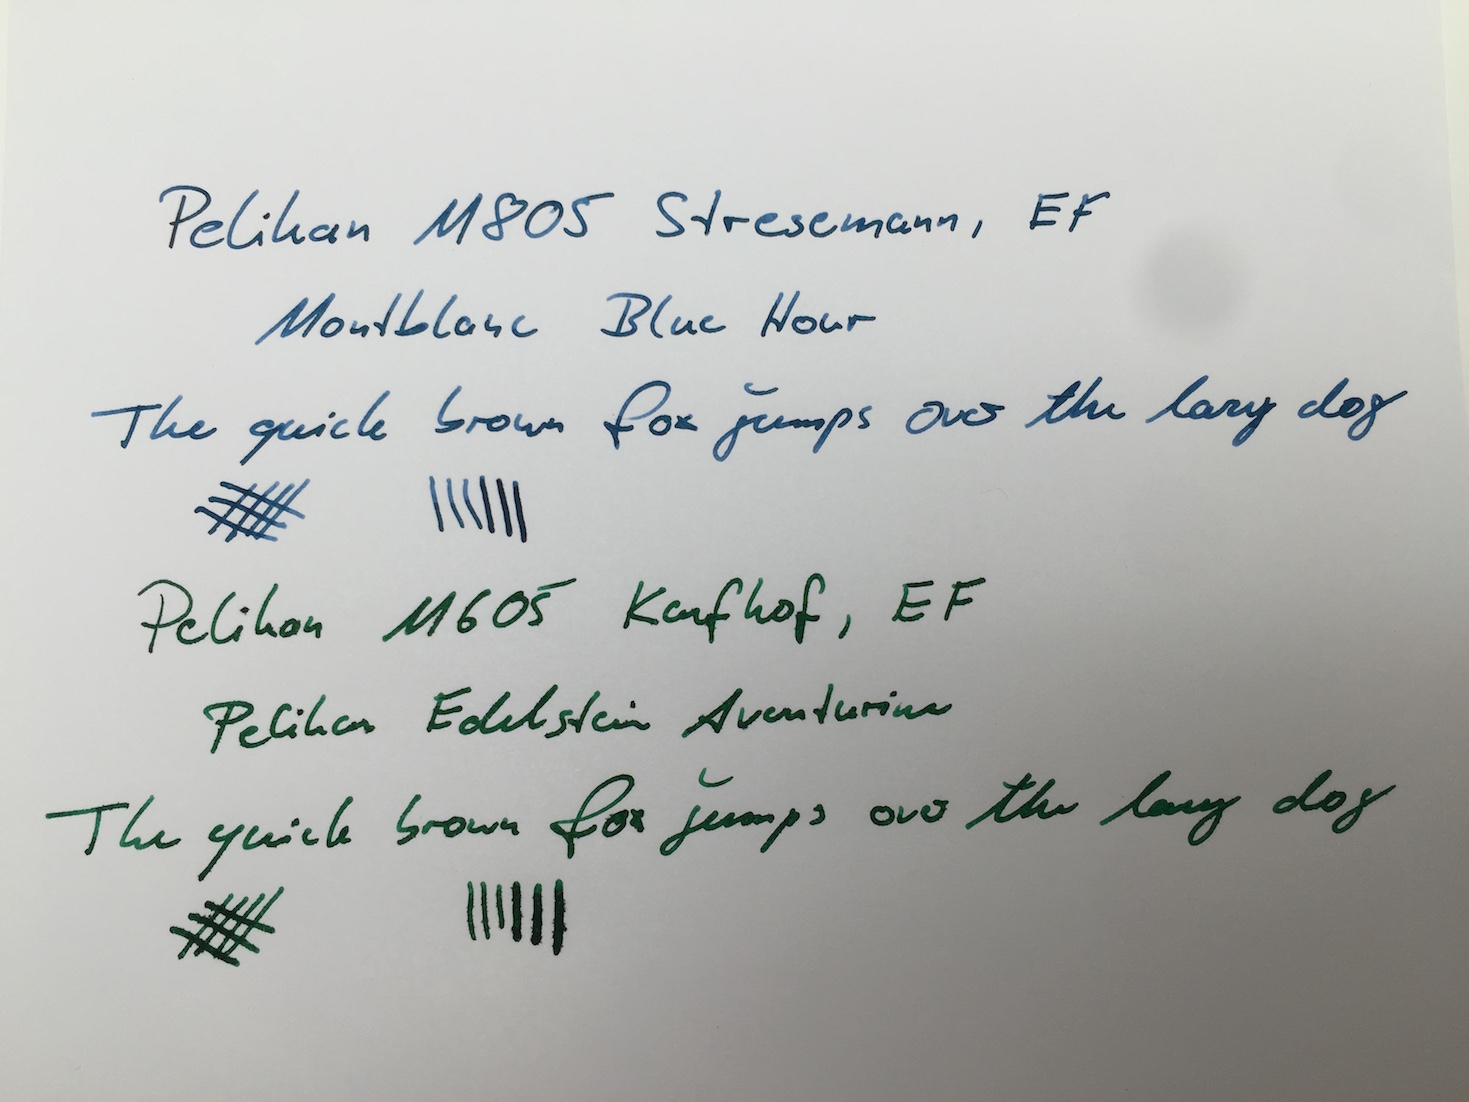 Pelikan M805 Stresemann, EF
Montblanc Blue Hour
The quick brown fox jumps over the lazy dog
Pelikan M605 Kaufhof, EF
Pelikan Edelstein Aventurine
The quick brown fox jumps over the lazy dog